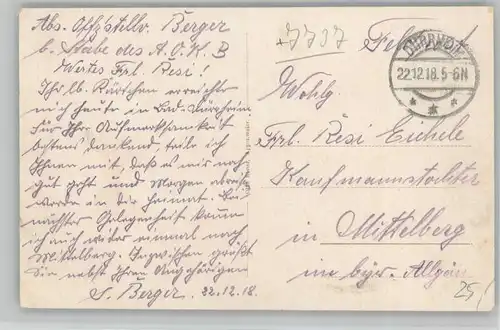 Abs. Offz. Stellv. Berger
b. Stabe des A.O.K. B
Wertes Frl. Resi!
Ihr lb. Kärtchen erreichte
mich heute in Bad-Dürrheim
Für Ihre Aufmerksamkeit
bestens dankend, teile ich
Ihnen mit, daß es mir noch
gut geht und Morgen abreise
werde in die Heimat. Bei
nächster Gelegenheit komme
ich auch wieder einmal nach
Mittelberg. Inzwischen grüßt
Sie nebst Ihren Angehörigen
S. Berger. 22.12.18.
Feldpost
22.12.18.5-6N
Wohlg.
Frl. Resi Eichele
Kaufmannstochter
in Mittelberg
im bayr. Allgäu
25